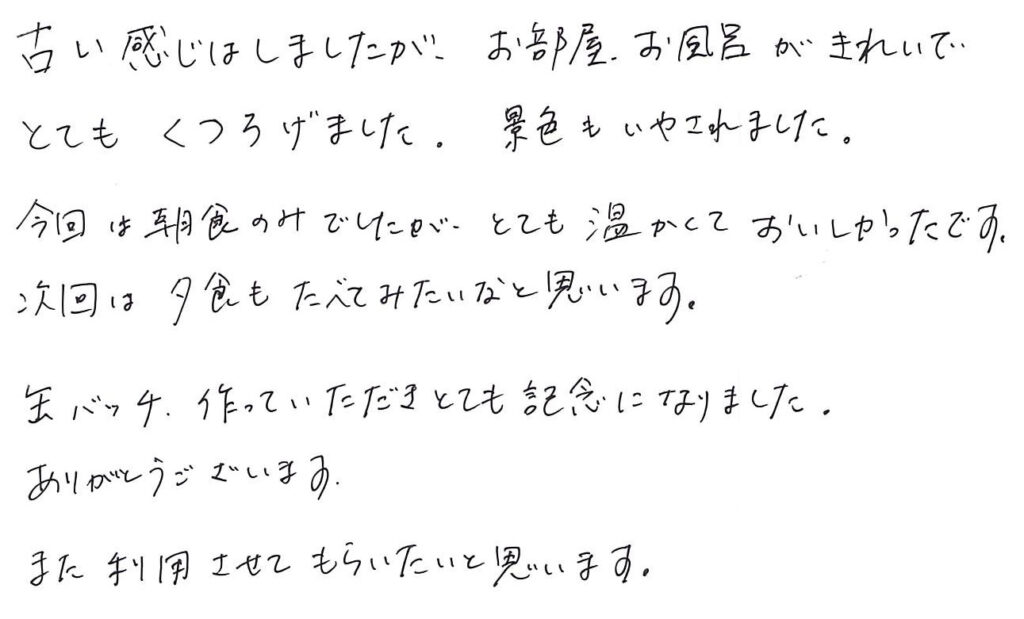 古い感じはしましたが、お部屋、お風呂がきれいで
とてもくつろげました。景色もいやされました。
今回は朝食のみでしたが、とても温かくておいしかったです。
次回は夕食もたべてみたいなと思います。
缶バッチ、作っていただきとても記念になりました。
ありがとうございます。
また利用させてもらいたいと思います。